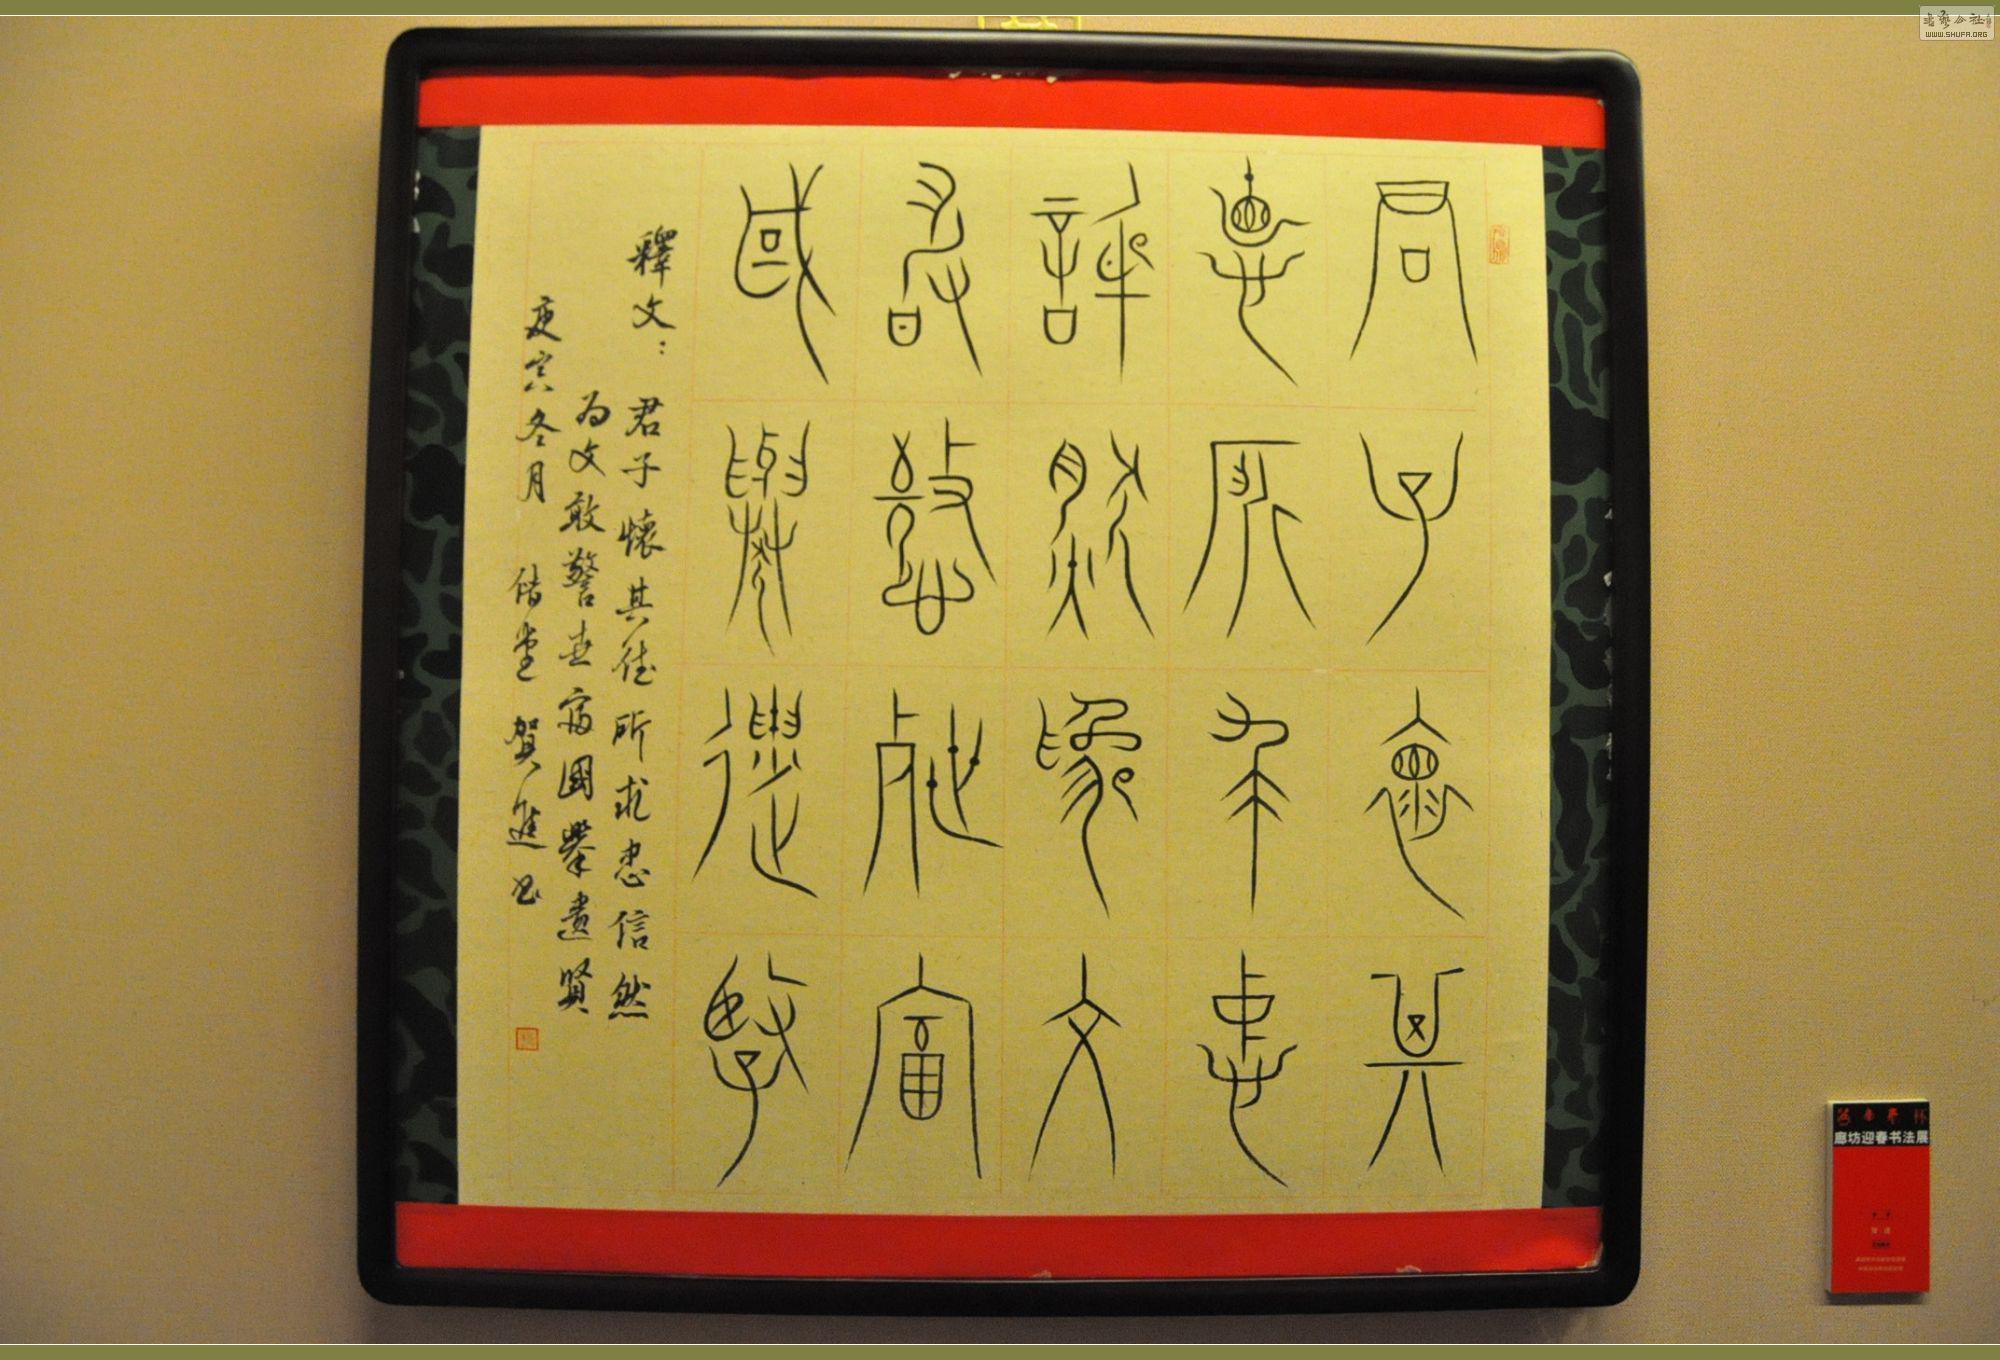 君子懷其
德所求忠
信然為文
敢警世富
國舉遺賢
釋文：君子懷其德所求忠信然
为文敢警世富國舉遺賢
庚寅冬月 偕堂 賀進书
廊坊迎春书法展
书艺公社
WWW.SHUFA.ORG